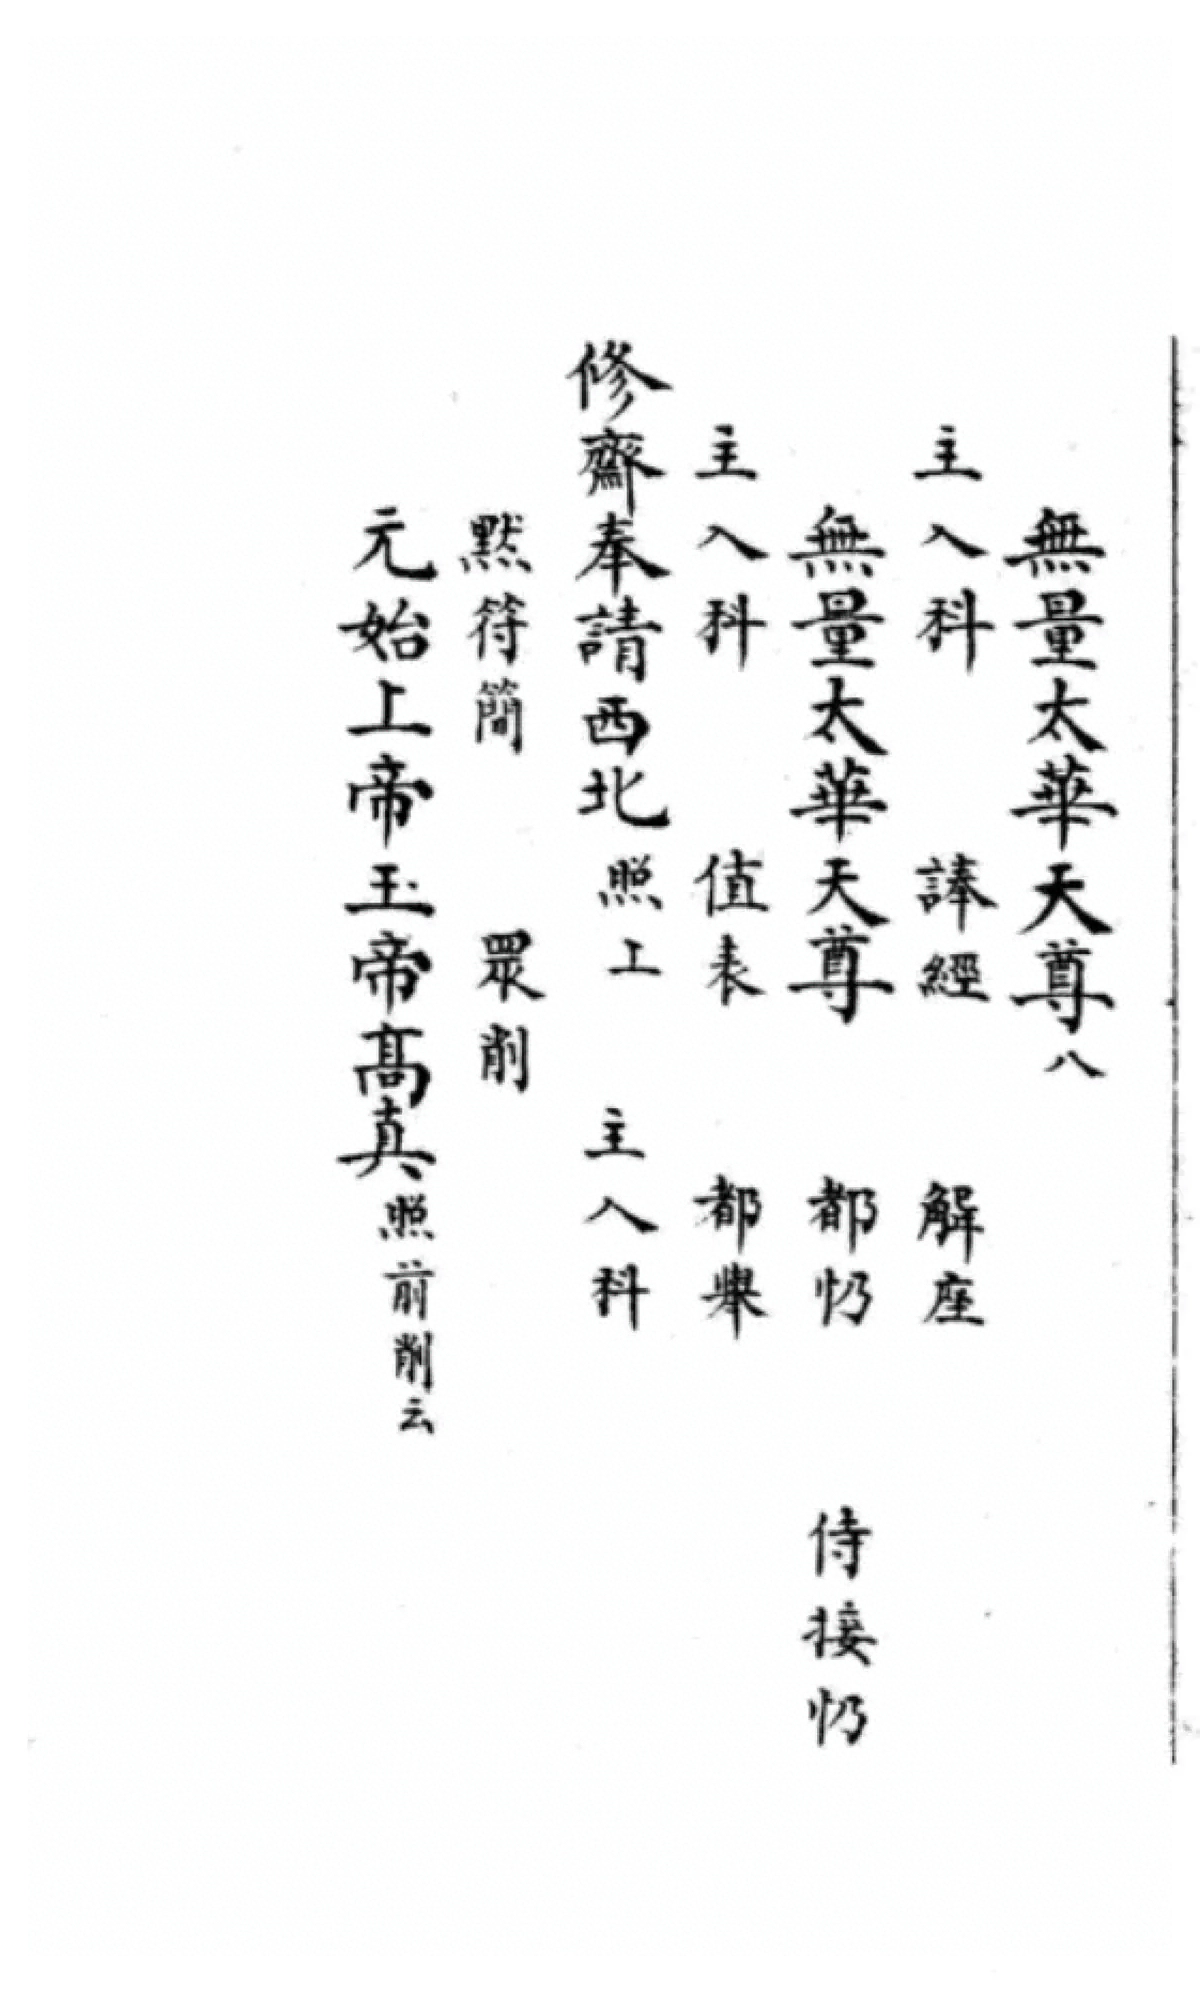 無量太華天尊八
主入科 諱經 解座
無量太華天尊 都忉 侍接忉
主入科 值表 都舉
修齋奉請西北照上 主入科
黙符簡 眾削
元始上帝玉帝高真照前削云